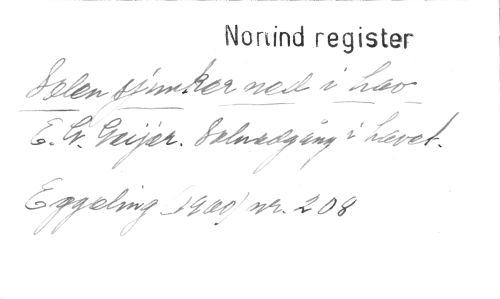 Norlind register
Solen sjunker ned i hav
E. G. Geijer. Solnedgång i havet.
Eggeling (1900) nr. 208